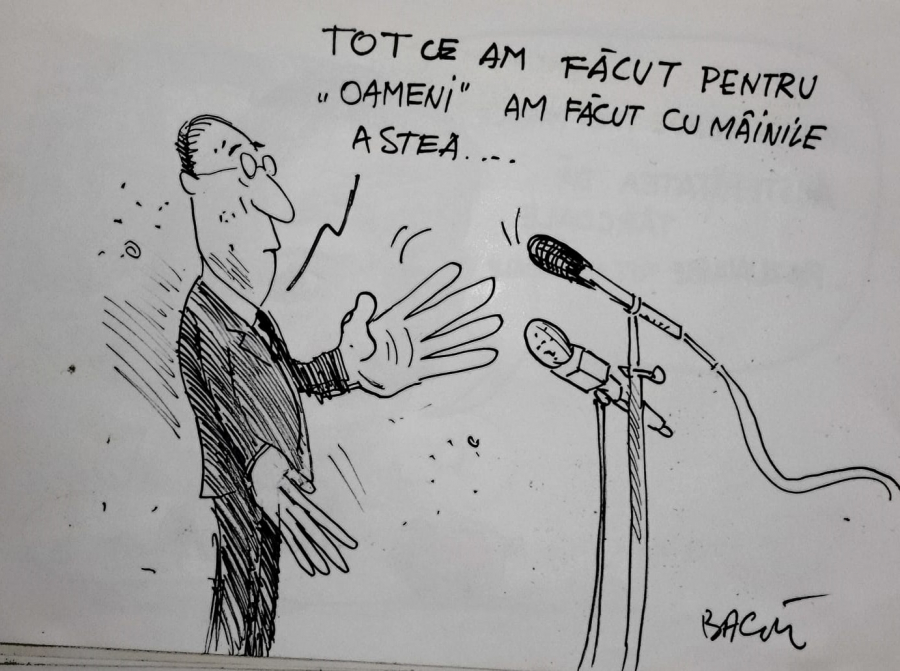 TOT CE AM FĂCUT PENTRU
„OAMENI" AM FĂCUT CU MÂINILE
ASTEA....